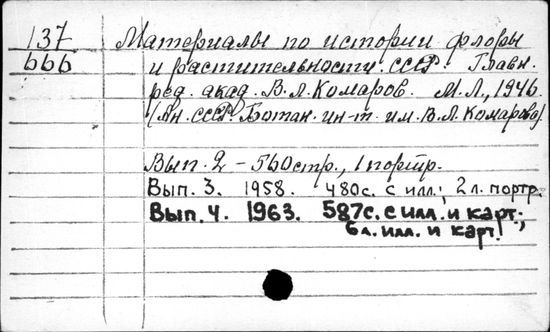 137
bbb
Материалы по истории флоры
и растительности СССР. Главн.
ред. акад. В.Л. Комаров. М.Л., 1946.
(Ан. СССР. Ботан. ин-т. им. В.Л. Комарова)
Вып. 2 – 560стр., 1 портр.
Вып. 3. 1958. 480с. с илл.; 2 л. портр.
Вып. 4. 1963. 587с. с илл. и карт.;
6 л. илл. и карт.